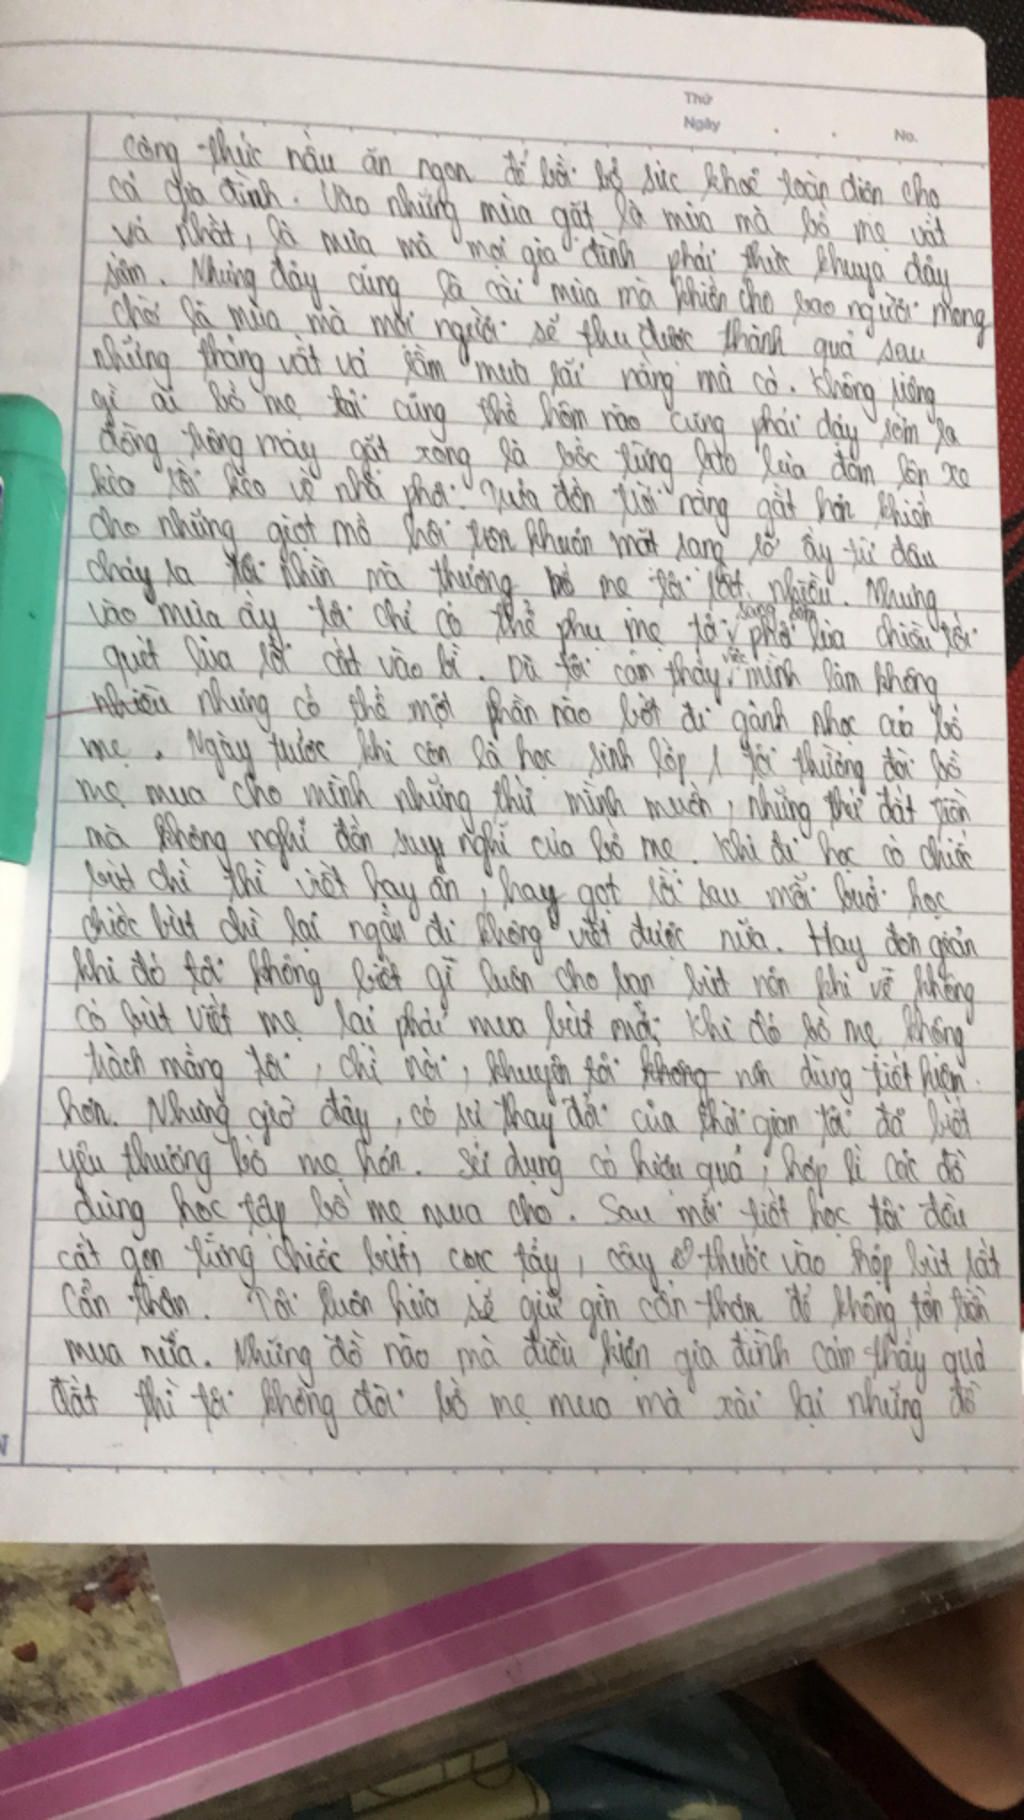 Thứ
Ngày
No.
công thức nấu ăn ngon để bồi bổ sức khoẻ toàn diện cho
cả gia đình. Vào những mùa gặt là mùa mà bố mẹ vất
vả nhất, là mùa mà mọi gia đình phải thức khuya dậy
sớm. Nhưng đây cũng là cái mùa mà khiến cho bao người mong
chờ là mùa mà mọi người sẽ thu được thành quả sau
những tháng vất vả tắm mưa rãi nắng mà có. Không riêng
gì ai bố mẹ tôi cũng thế hôm nào cũng phải dậy sớm ra
đồng trông máy gặt xong là bốc từng bao lúa đêm lên xe
kéo rồi kéo về nhà phơi. Trưa đến trời nắng gắt hơn khiến
cho những giọt mồ hôi trên khuôn mặt rạng rỡ ấy từ đâu
chảy ra tôi nhìn mà thương bố mẹ tôi rất nhiều. Nhưng
vào mùa ấy tôi chỉ có thể phụ mẹ tôi sáng đem phơi lúa chiều tối
quét lúa rồi cất vào bì. Dù tôi cảm thấy việc mình làm không
nhiều nhưng có thể một phần nào bớt đi gánh nhọc của bố
mẹ. Ngày trước khi còn là học sinh lớp 1 tôi thường đòi bố
mẹ mua cho mình những thứ mình muốn, những thứ đắt tiền
mà không nghĩ đến suy nghĩ của bố mẹ. Khi đi học có chiếc
bút chì thì viết hay ấn, hay gọt rồi sau mỗi buổi học
chiếc bút chì lại ngắn đi không viết được nữa. Hay đơn giản
khi đó tôi không biết gì luôn cho bạn bút nên khi về không
có bút viết mẹ lại phải mua bút mới. Khi đó bố mẹ không
trách mắng tôi, chỉ nói, khuyên tôi không nên dùng tiết kiệm
hơn. Nhưng giờ đây, có sự thay đổi của thời gian tôi đã biết
yêu thương bố mẹ hơn. Sử dụng có hiệu quả, hợp lí các đồ
dùng học tập bố mẹ mua cho. Sau mỗi tiết học tôi đều
cất gọn từng chiếc bút, cục tẩy, cây thước vào hộp bút rất
cẩn thận. Tôi luôn hứa sẽ giữ gìn cẩn thận để không tốn tiền
mua nữa. Những đồ nào mà điều kiện gia đình cảm thấy quá
đắt thì tôi không đòi bố mẹ mua mà xài lại những đồ